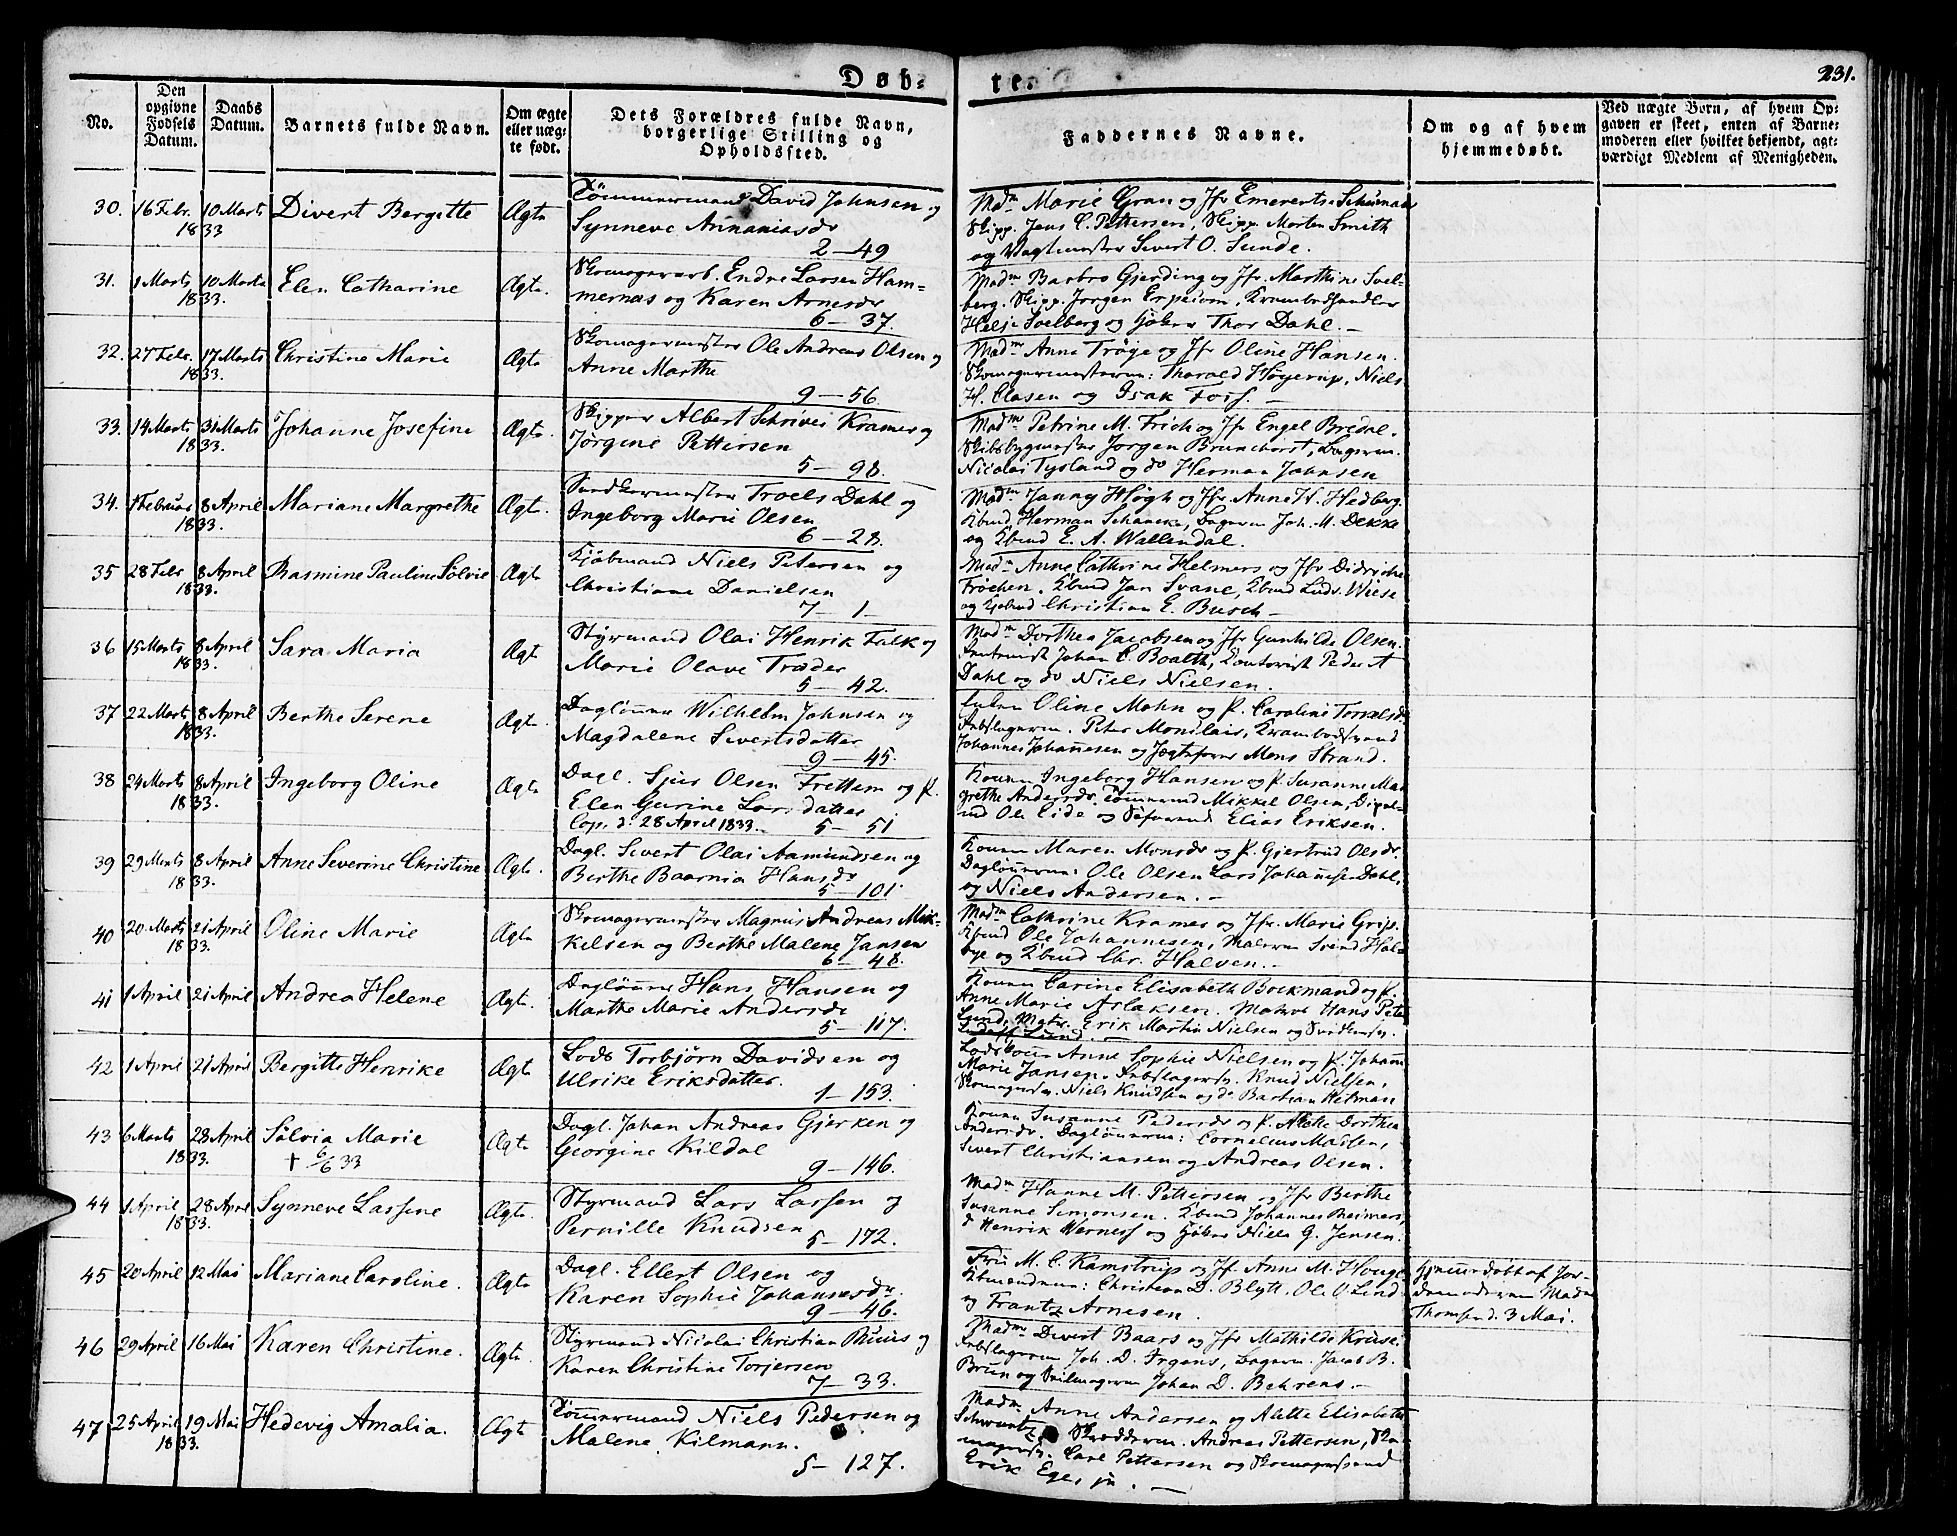 Døb-
te.
231.
No.
Den opgivne Fødsels Datum.
Daabs Datum.
Barnets fulde Navn.
Om ægte eller uægte født.
Dets Forældres fulde Navn, borgerlige Stilling og Opholdssted.
Faddernes Navne.
Om og af hvem hjemmedøbt.
Ved uægte Børn, af hvem Opgaven er skeet, enten af Barnemoderen eller hvilket bekjendt, agtværdigt Medlem af Menigheden.
30. 16 Febr. 10 Marts 1833 Divert Bergitte Ægte
Tømmermand David Johnsen og
Synneve Annaniasdr
2 - 49
Madm Marie Gran og Jfr Emerentse Schuman
Skipp. Jens C. Pettersen, Skipp. Morten Smith
og Vagtmester Sivert O. Sunde.
31. 1 Marts 10 Marts 1833. Elen Catharine Ægte.
Skomagerarb. Endre Larsen Ham-
mernas og Karen Arnesdr
6 - 37.
Madm Barbro Gjerding og Jfr Marthine Svel-
berg. Skipp. Jørgen Erpecom, Krambodhandler
Helje Svelberg og Thor Dahl. -
32. 27 Febr. 17 Marts 1833. Christine Marie Ægte
Skomagermester Ole Andreas Olsen og
Anne Marthe
9 - 56.
Madm Anne Trøye og Jfr Oline Hansen.
Skomagermesterne: Thorald Høyerup, Niels
H. Clasen og Isak Foss. -
33. 14 Marts 31 Marts 1833. Johanne Josefine Ægte.
Skipper Albert Schriver Kramer og
Jørgine Pettersen
5 - 98.
Madm Petrine M. Frich og Jfr Engel Bredal.
Skibsbygmester Jørgen Brunchorst, Bagerm.
Nicolai Tysland og do Herman Johnsen
34. 1 Februar 8 April 1833. Mariane Margrethe Ægte.
Snedkermester Troels Dahl og
Ingeborg Marie Olsen
6 - 28.
Madm Janny Høgh og Jfr Anne H. Hedberg.
Kbmd Herman Schancke, Bagerm Joh. M. Dekke
og Kbmd E. A. Wallendal.
35 28 Febr 8 April 1833. Rasmine Pauline Sølvie Ægte
Kjøbmand Niels Petersen og
Christiane Danielsen
7 - 1 -
Madm Anne Cathrine Helmers og Jfr Didriche
Frøchen. Kbmd Jan Svane, Kbmd Ludv. Wiese
og Kjøbmd Christian E. Busch -
36 15 Marts 8 April 1833. Sara Maria Ægte
Styrmand Olai Henrik Falk og
Marie Olave Træder
5 - 42.
Madm Dorthea Jacobsen og Jfr Gunhilde Olsen.
Johan C. Boalth, Kontorist Peder A
Dahl og do Niels Nielsen.
37 22 Marts 8 April 1833. Berthe Serene Ægte.
Daglønner Wilhelm Johnsen og
Magdalene Sivertsdatter
9 - 45.
Oline Mohn og P. Caroline
Peter Monclair, Krambodsvend
Johannes Johannesen og Jægtefører Mons Strand.
38 24 Marts 8 April 1833. Ingeborg Oline Ægte
Dagl. Sjur Olsen Frettem og P.
Elen Gurine Larsdatter
Cop. d. 28 April 1833. 5 - 51
Konen Ingeborg Hansen og P. Susanne Mar
grethe Andersdr. Tømmermd Mikkel Olsen,
Ole Eide og Elias Eriksen.
39 29 Marts 8 April 1833. Anne Severine Christine Ægte.
Dagl. Sivert Olai Aamundsen og
Berthe Baarnia Hansdr
5 - 101.
Konen Maren Monsdr og P. Gjertrud Olsdr.
Dagløn̄erne: Ole Olsen Lars Johannesen Dahl,
og Niels Andersen. -
40 20 Marts 21 April 1833. Oline Marie Ægte
Skomagermester Magnus Andreas Mik-
kelsen og Berthe Malene Jansen
6 - 48.
Madm Cathrine Kramer og Jfr. Marie Grip.
Kbmd Ole Johannesen, Malerm Svend Hal-
og Kbmd Chr. Halven. -
41 1 April 21 April Andrea Helene Ægte.
Dagløn̄er Hans Hansen og
Marthe Marie Andersdr
5 - 117.
Konen Carine Elisabeth Bockmand og P.
Anne Marie Aslaksen. Hans Peter
Lund, Erik Martin Nielsen og
42 1 April 21 April Bergitte Henrike Ægte
Lods Torbjørn Davidsen og
Ulrike Eriksdatter.
1 - 153.
Anne Sophie Nielsen og P. Johann
Marie Jansen. Knud Nielsen,
Niels Knudsen og do Bastian Hitman
43 6 Marts 28 April 1833. Sølvia Marie Ægte
+ 6/6 33
Dagl. Johan Andreas Gjerken og
Georgine Kildal
9 - 146.
Konen Susanne Pedersdr og P. Alette Dorthea
Andersdr. Dagløn̄erne: Cornelius Madsen,
Sivert Christiansen og Andreas Olsen.
44 1 April 28 April 1833. Synneve Lassine Ægte.
Styrmand Lars Larsen og
Pernille Knudsen
5 - 172.
Madm Hanne M. Pettersen og Jfr Berthe
Susanne Simonsen. Kbmd Johannes Reimers,
Henrik Werness og Niels G. Jensen.
45 20 April 12 Mai Mariane Caroline. Ægte
Dagl. Ellert Olsen og
Karen Sophie Johannesdr
9 - 46.
Fru M. C. Kamstrup og Jfr. Anne M. Houge
Kbmændene: Christian D. Blytt. Ole O. Lind
og Frantz Arnesen.
Hjem̄edøbt af Jor-
demoderen Madm
Thomsen d. 3 Mai.
46 29 April 16 Mai Karen Christine. Ægte.
Styrmand Nicolai Christian Ruus og
Karen Christine Torjersen
7 - 33.
Madm Divert Baars og Jfr Mathilde Kruse.
Joh. D. Irgens, Bagerm. Jacob B.
Brun og Johan D. Behrens. -
47 25 April 19 Mai 1833. Hedevig Amalia. Ægte
Tøm̄ermand Niels Pedersen og
Malene Kilmann.
5 - 127.
Madm Anne Andersen og Alette Elisabeth
Schwartz. Skrædderm. Andreas Pettersen, Sko-
Carl Pettersen og Skomagersvend
Erik Ege, jn. -